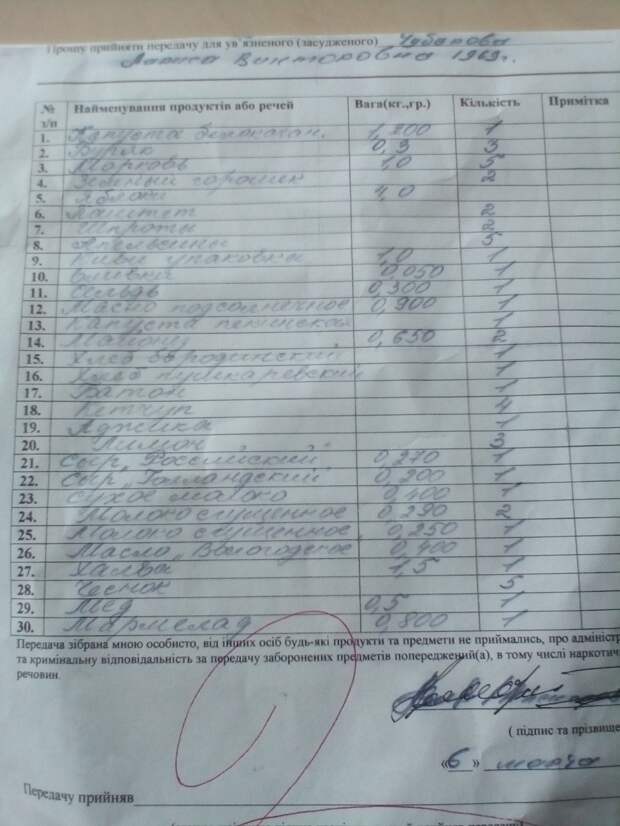 Прошу прийняти передачу для ув`язненого (засудженого) Чубанова
Лариса Викторовна 1969г.
№ з/п Найменування продуктів або речей Вага(кг.,гр.) Кількість Примітка
1. Капуста белокачан. 1,200 1
2. Буряк 0,9 3
3. Морковь 1,0 5
4. Зеленый горошек 2
5. Яблоки 4,0
6. Паштет 2
7. Шпроты 2
8. Апельсины 5
9. Киви упаковка 1,0 1
10. 0,050 1
11. Сельдь 0,300 1
12. Масло подсолнечное 0,900 1
13. Капуста пекинская 1
14. Майонез 0,650 2
15. Хлеб бородинский 1
16. Хлеб 1
17. Батон 1
18. Кетчуп 4
19. Аджика 1
20. Лимон 3
21. Сыр „Российский" 0,270 1
22. Сыр „Голландский 0,200 1
23. Сухое молоко 0,400 1
24. Молоко сгущенное 0,290 2
25. Молоко сгущенное 0,250 1
26. Масло „Вологодское 0,400 1
27. Халва 1,5 1
28. Чеснок 5
29. Мёд 0,5 1
30. Мармелад 0,800 1
Передача зібрана мною особисто, від інших осіб будь-які продукти та предмети не приймались, про адміністр
та кримінальну відповідальність за передачу заборонених предметів попереджений(а), в тому числі наркотич
речовин.
( підпис та прізвище
«6» марта
Передачу прийняв